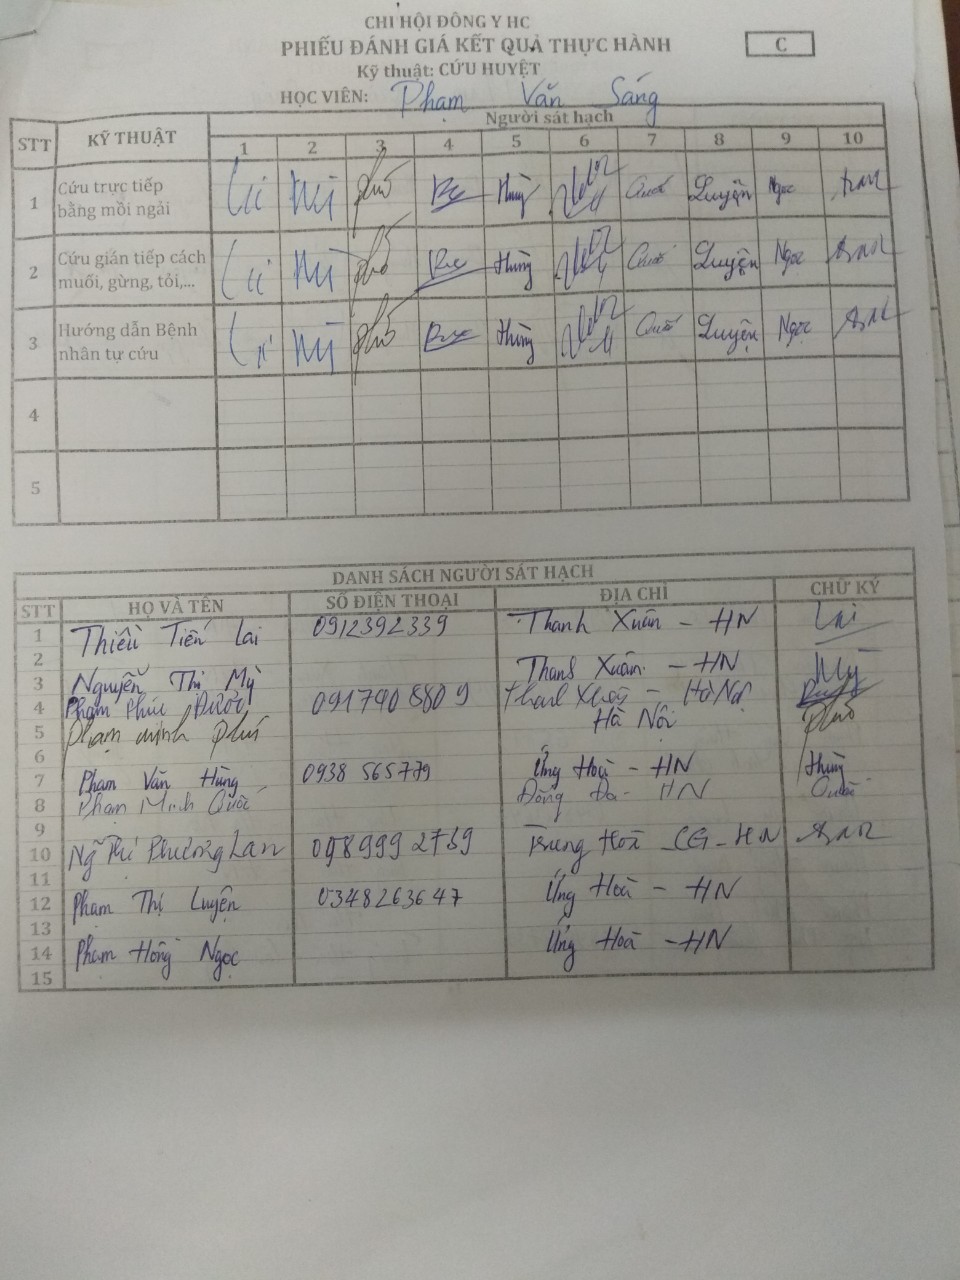 CHI HỘI ĐÔNG Y HC
PHIẾU ĐÁNH GIÁ KẾT QUẢ THỰC HÀNH
C
Kỹ thuật: CỨU HUYỆT
HỌC VIÊN: Phạm Văn Sáng
STT KỸ THUẬT Người sát hạch
1 2 3 4 5 6 7 8 9 10
1 Cứu trực tiếp bằng mồi ngải Mỹ Phú Hùng Quốc Luyện Ngọc
2 Cứu gián tiếp cách muối, gừng, tỏi,... Mỹ Phú Hùng Quốc Luyện Ngọc
3 Hướng dẫn Bệnh nhân tự cứu Mỹ Phú Hùng Quốc Luyện Ngọc
4
5
DANH SÁCH NGƯỜI SÁT HẠCH
STT HỌ VÀ TÊN SỐ ĐIỆN THOẠI ĐỊA CHỈ CHỮ KÝ
1 Thiều Tiến Lai 0912392339 Thanh Xuân - HN Lai
2
3 Nguyễn Thị Mỳ Thanh Xuân - HN Mỳ
4 Phạm Phúc Được 0917408809 Thanh Xuân - Hà Nội
5 Phạm Minh Phú Hà Nội Phú
6
7 Phạm Văn Hùng 0938 565779 Ứng Hoà - HN Hùng
8 Phạm Minh Quốc Đống Đa - HN Quốc
9
10 Thị Phương Lan 098999 2739 Trung Hoà - CG - HN
11
12 Phạm Thị Luyện 0348263647 Ứng Hoà - HN
13
14 Phạm Hồng Ngọc Ứng Hoà - HN
15